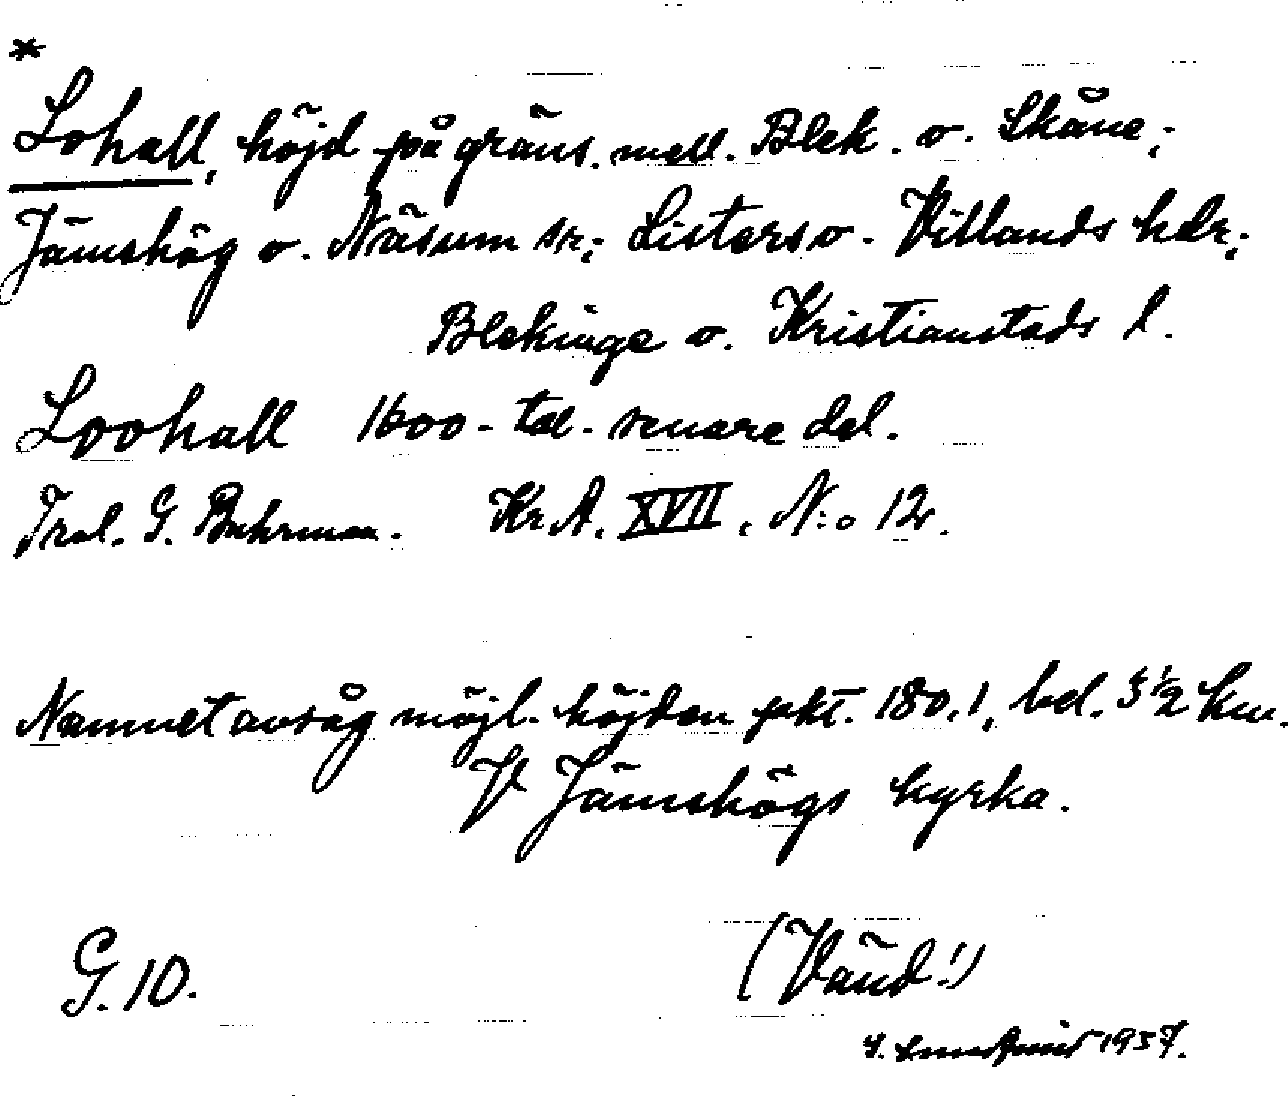 *
Lohall, höjd på gräns. mell. Blek. o. Skåne;
Jämshög o. Näsum sr; Listers o. Villands hdr;
Blekinge o. Kristianstads l.
Loohall 1600-tal. senare del.
Trol. G. Buhrman. Kr A. XVII, N:o 12.
Namnet avsåg möjl. höjden pkt. 180.1, bel. 5 1/2 km.
Jämshögs kyrka.
G. 10.
(Vänd!)
1957.